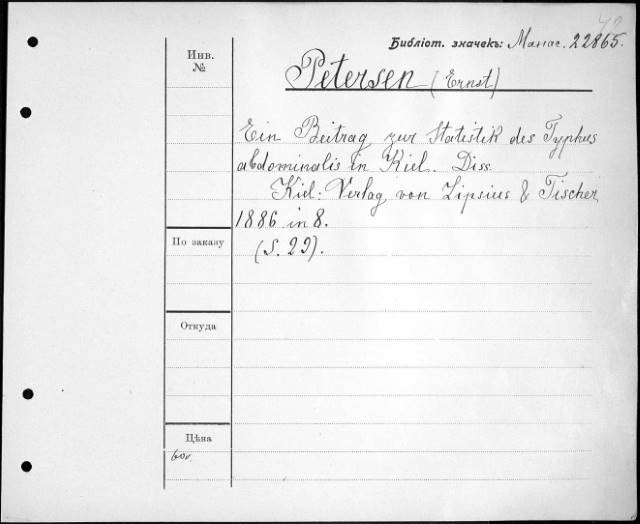 Библіот. значекъ: Манас. 22865.
Инв.
№
Petersen (Ernst)
Ein Beitrag zur Statistik des Typhus
abdominalis in Kiel. Diss.
Kiel: Verlag von Lipsius & Tischer
1886 in 8.
По заказу
(S. 29).
Откуда
Цѣна